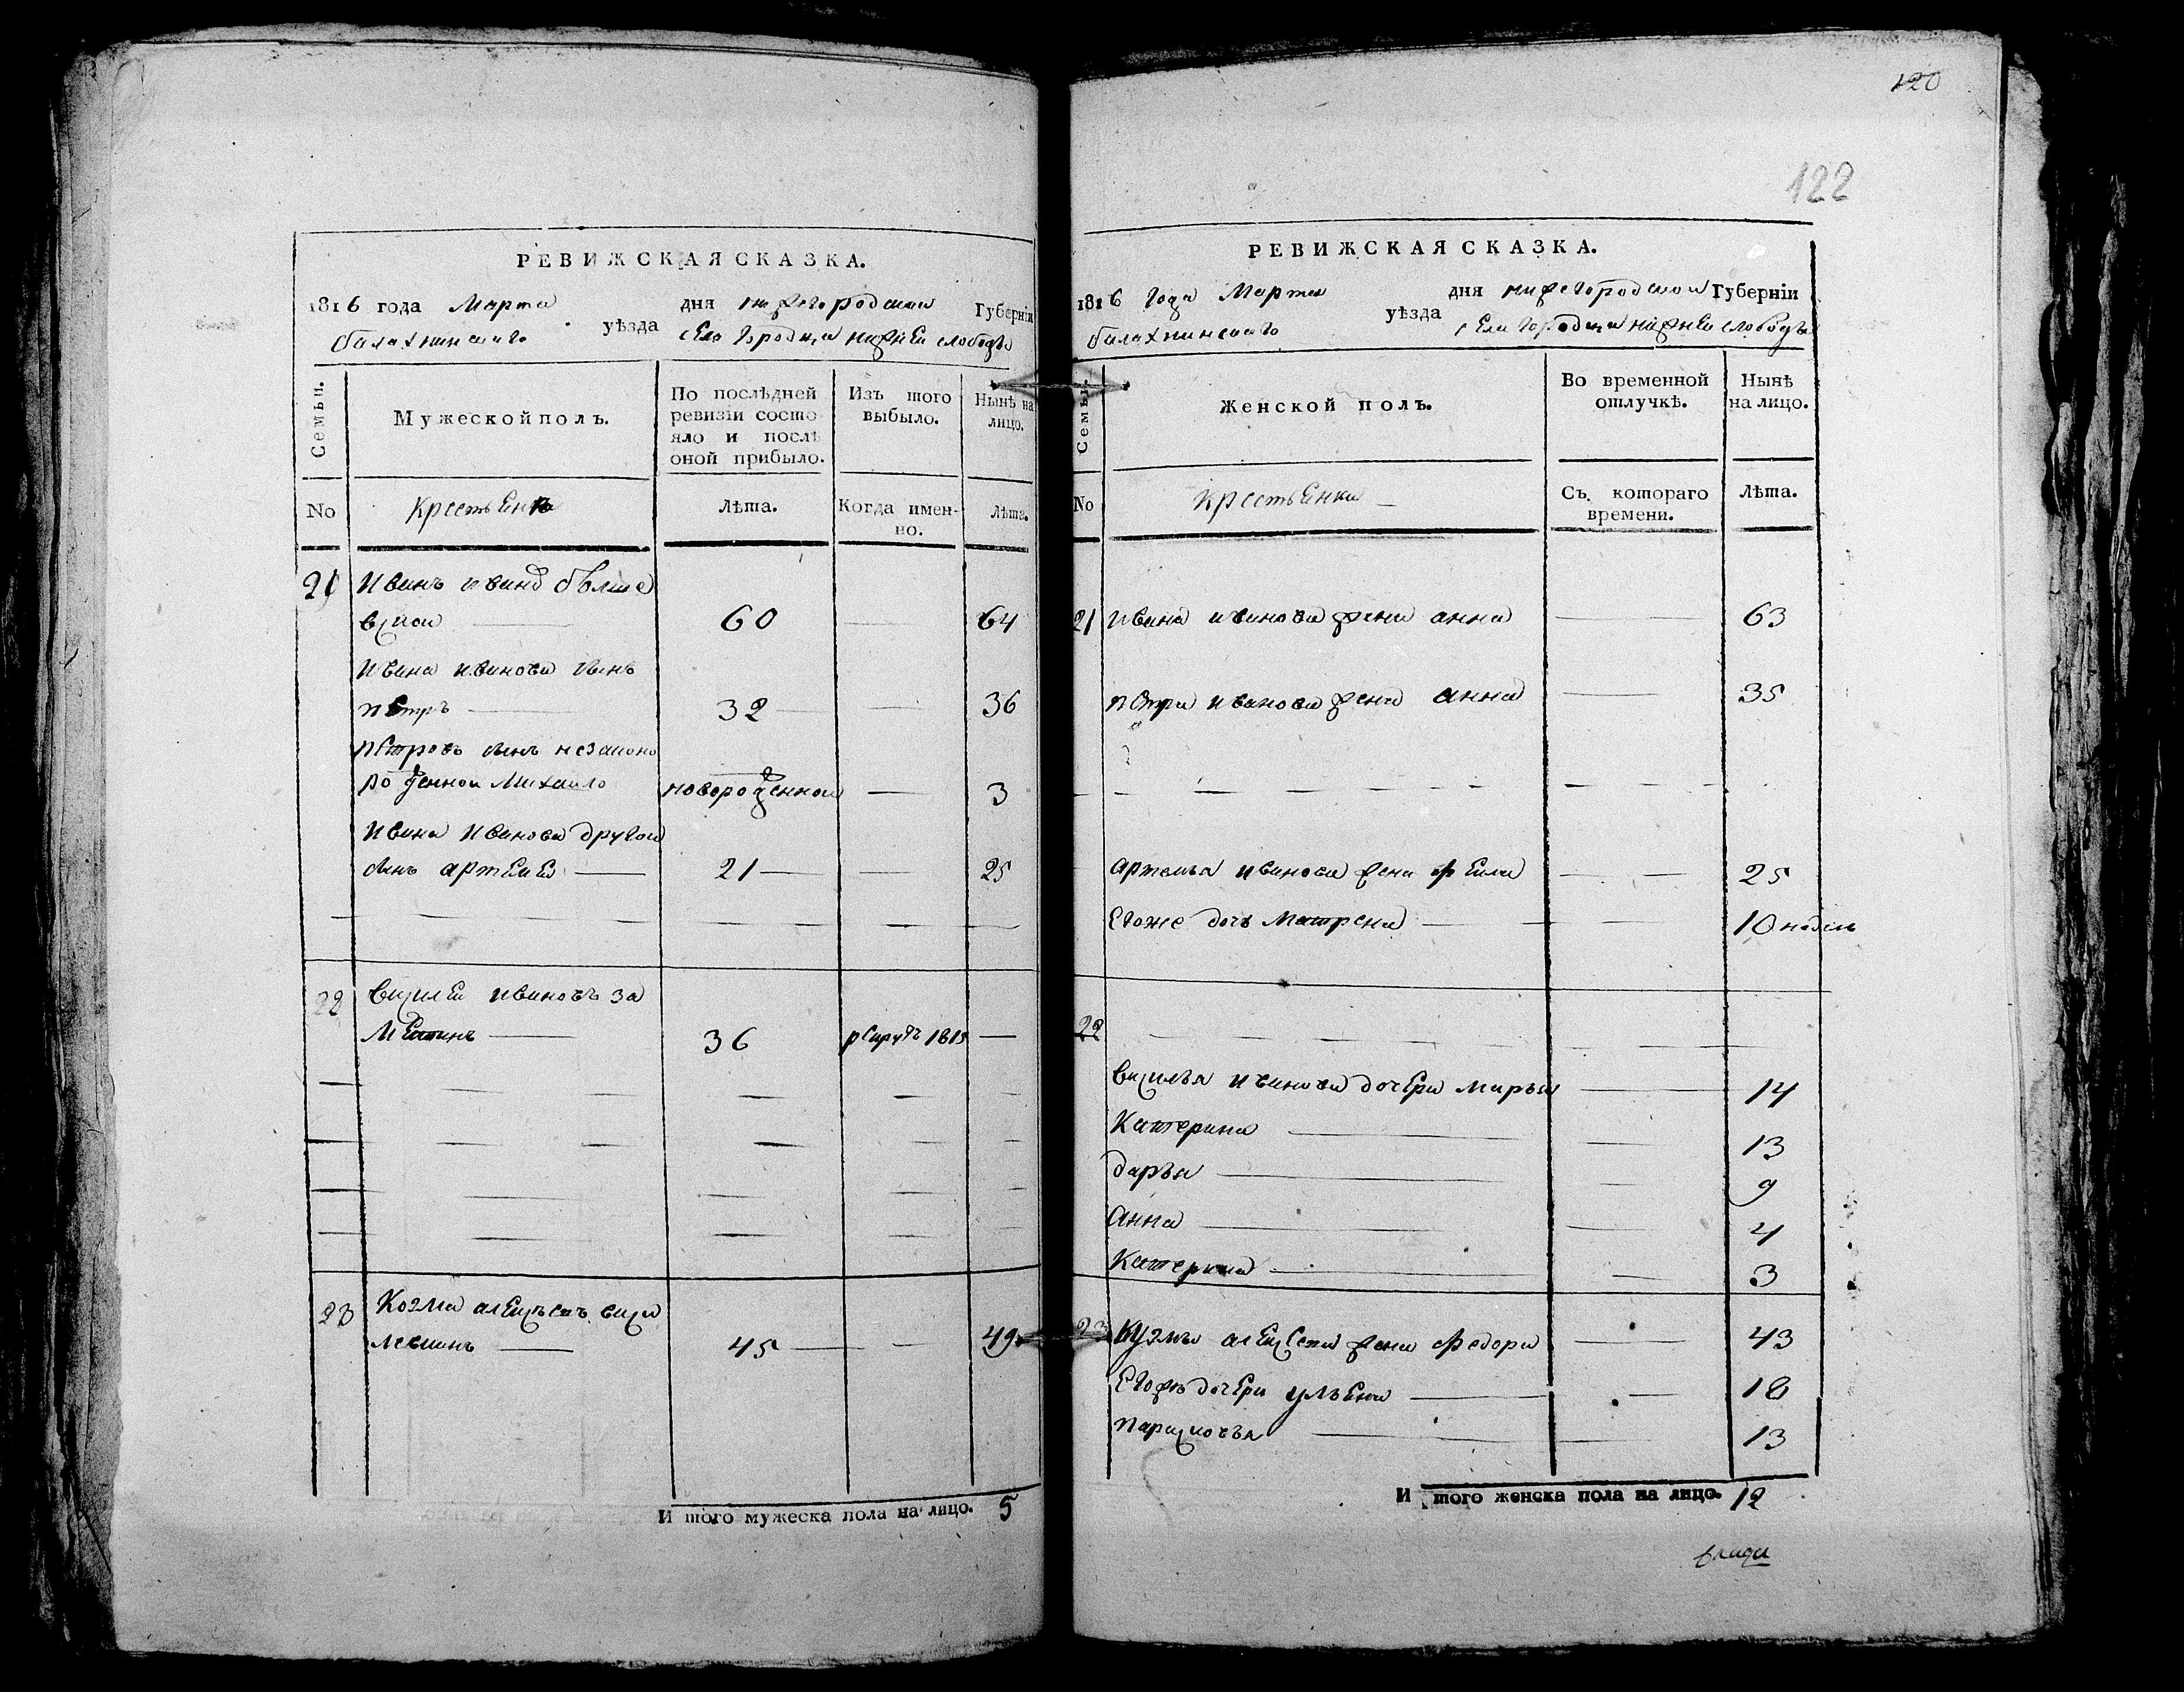 РЕВИЖСКАЯ СКАЗКА.
1816 года Марта дня нижегородской Губерніи
балахнинскаго уѣзда села городца нижней слободы
Семьи.
Мужеской полъ.
По послѣдней ревизіи состояло и послѣ оной прибыло.
Изъ того выбыло.
Нынѣ на лицо.
No
Крестьяне
Лѣта.
Когда именно.
Лѣта.
21 Иванъ иванов
60 — 64
Ивана иванова сынъ
петръ — 32 — 36
петровъ сынъ незаконо
рожденной Михаило новорожденной — 3
Ивана Иванова другой
сынъ артемей — 21 — 25
22 василей ивановъ за
36 рекрутъ 1815 —
23 Козма алексѣевъ васи
левшинъ — 45 — 49
И того мужеска пола на лицо. 5
120
122
РЕВИЖСКАЯ СКАЗКА.
1816 года Марта дня нижегородской Губерніи
балахнинскаго уѣзда села городца нижней слободы
Семьи.
Женской полъ.
Во временной отлучкѣ.
Нынѣ на лицо.
No
крестьянки —
Съ котораго времени.
Лѣта.
21 ивана иванова жена анна — 63
петра иванова жена анна — 35
артемья иванова жена — 25
Егоже дочь Матрена — 10 недель
22
василья иванова дочери марья — 14
Катерина — 13
дарья — 9
Анна — 4
Катерина — 3
23 Кузмы алексеева жена федора — 43
Егожъ дочери ульяна — 18
парасковья — 13
И того женска пола на лицо. 12